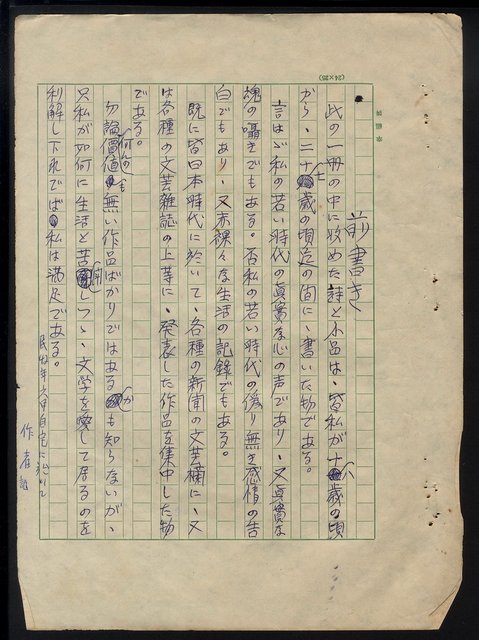 前書き
此の一冊の中に收めた詩と小品は、皆私が十八歳の頃
から、二十七歳の頃迄の間に、書いた物である。
言はゞ私の若い時代の眞實な心の声であり、又眞實な
魂の囁きでもある。否私の若い時代の偽り無き感情の告
白でもあり、又赤裸々な生活の記錄でもある。
既に皆日本時代に於いて、各種の新聞の文芸欄に、又
は各種の文芸雜誌の上等に、発表した作品を集中した物
である。
勿論何の價値も無い作品ばかりではあるかも知らないが、
只私が如何に生活と苦鬪しつゝ、文学を愛して居るのを
利解し下れでば私は満足である。
自宅に於いて
作者
(24×25)